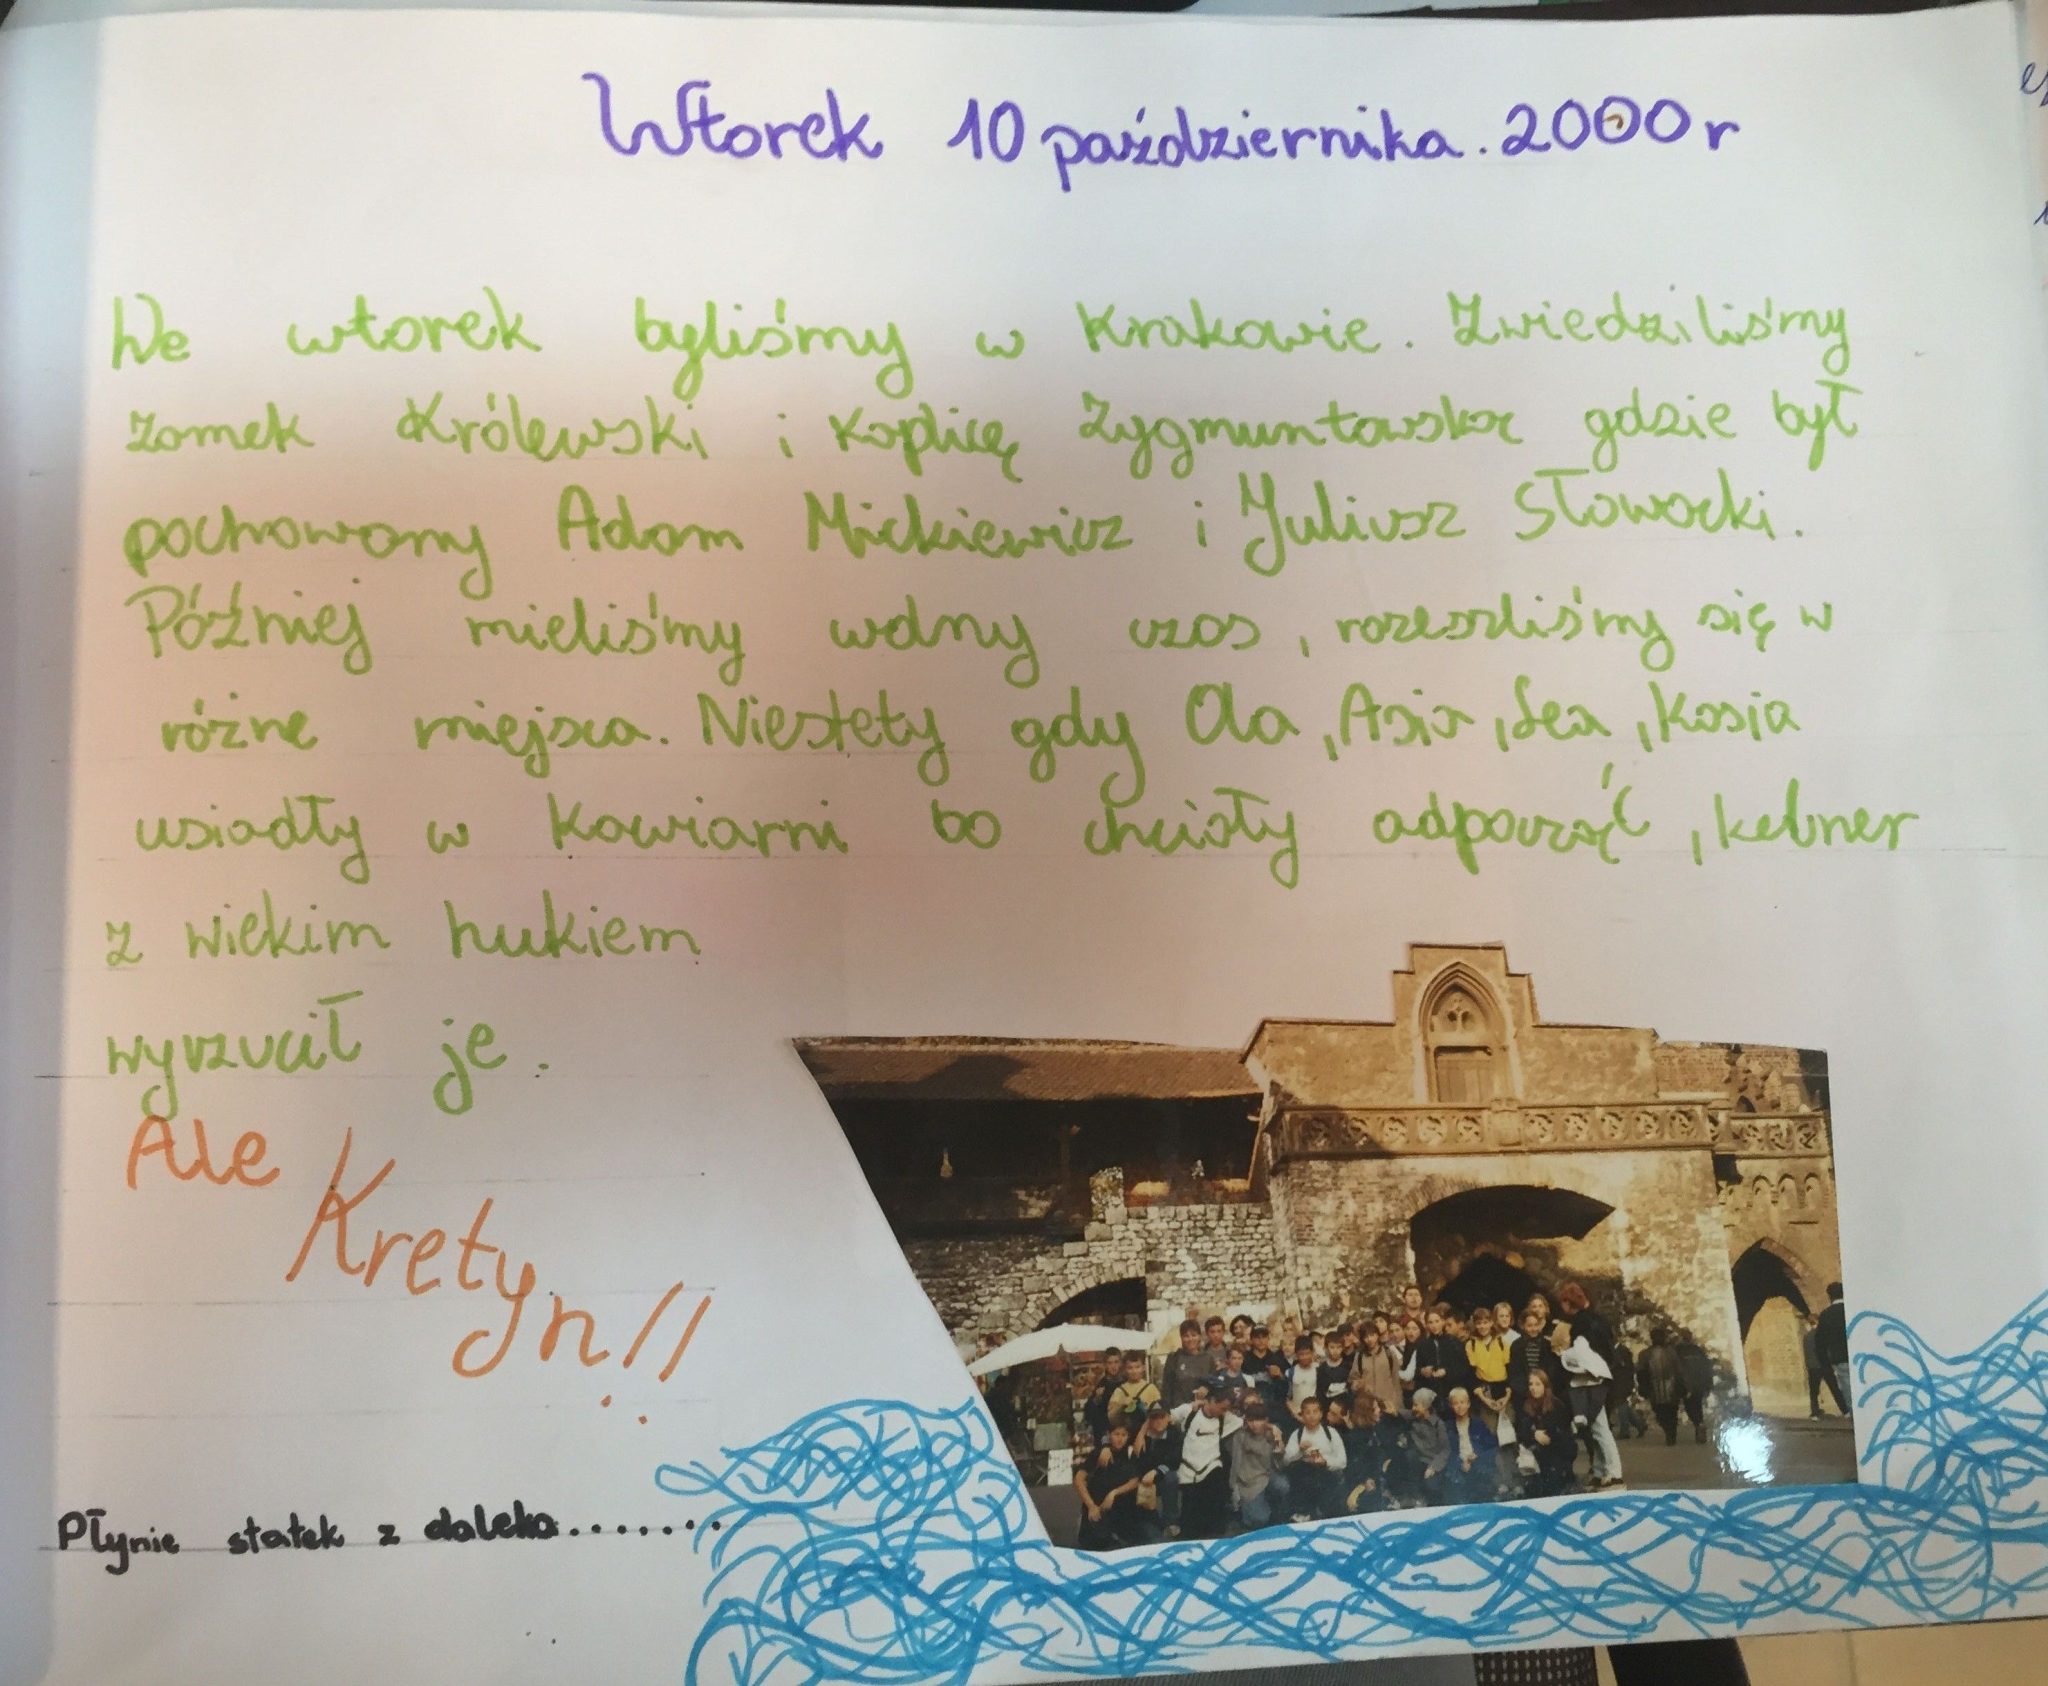 Wtorek 10 października. 2000 r
We wtorek byliśmy w Krakowie. Zwiedziliśmy
zamek Królewski i Kaplicę Zygmuntowską gdzie był
pochowany Adam Mickiewicz i Juliusz Słowacki.
Później mieliśmy wolny czas, rozeszliśmy się w
różne miejsca. Niestety gdy Ola, Asia, Lea, Kasia
usiadły w kawiarni bo chciały odpocząć, kelner
z wielkim hukiem
wyrzucił je.
Ale
Kretyn!!
Płynie statek z daleka.......